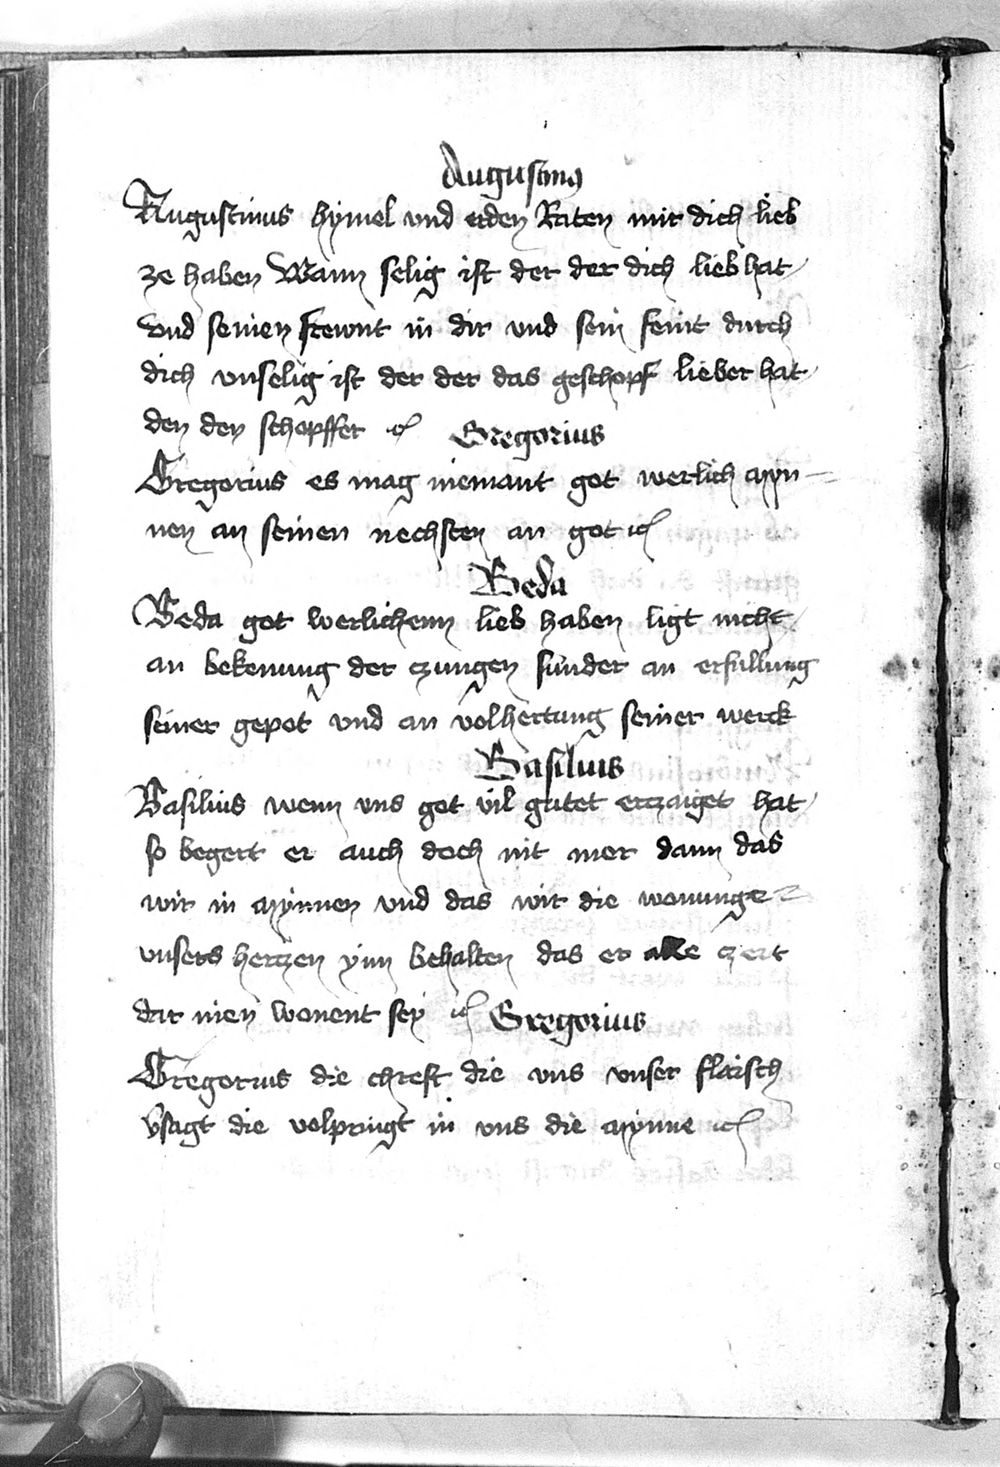 Augustinus
Augustinus hymel vnd erden Raten mir dich lieb
ze haben Wann selig ist der der dich lieb hat
vnd seinen frewnt in dir vnd sein feint durch
dich vnselig ist der der das geschopf lieber hat
den den schopffer etc Gregorius
Gregorius es mag niemant got werlich myn
nen an seinen nechsten an got etc
Beda
Beda got werlichenn lieb haben ligt nicht
an bekenung der czungen sunder an erfullung
seiner gepot vnd an volhertung seiner werck
Basilius
Basilius wenn vns got vil gutet erczaiget hat
so begert er auch doch nit mer dann das
wir in mynnen vnd das wir die wonunge
vnsers herczen ynn behalten das er alle czeit
dar inen wonent sey etc Gregorius
Gregorius die chreft die vns vnser flaisch
vsagt die volpringt in vns die mynne etc